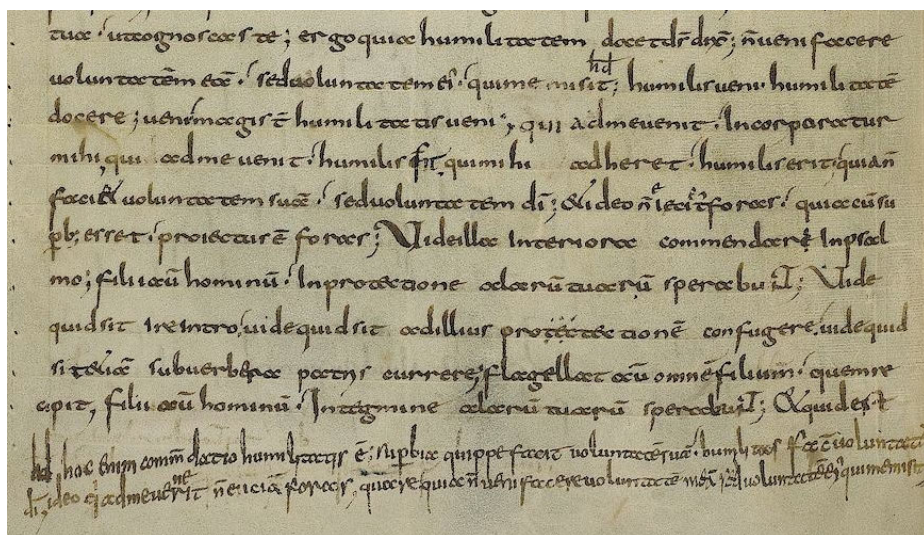 tuae · ut cognoscas te; ergo quia humilitatem docet dn̄s dix̄; n̄ veni facere
voluntatē meā · sed voluntatem ei' · qui me misit; hd humilis veni · humilitatē
docere; veni magist̄ humilitatis veni; qui ad me venit · Incorporatur
mihi, qui ad me venit · humilis fit, qui mihi adheret · humilis erit; quia n̄
facit voluntatem suā · sed voluntatem dī; & ideo n̄ foras · quia cū su
ꝑb; esset · proiectus ē foras; Vide illa Interiora commendari In psal
mo; filii aū hominū · In protectione alarū tuarū sperabuṫ; Vide
quid sit Ire Intro, vide quid sit ad illius protectionē confugere, vide quid
sit etiā sub verbera patris currere; flagellat aū omnē filium · quem re
cipit, filii aū hominū · In tegmine alarū tuarū sperabuṫ; & quid est
hd hoc enim comm̄datio humilitatis ē; supbia quippe facit voluntatē suā · humilitas facit voluntatē
dī, ideo q' ad me venerit n̄ eiciā foras, quare quia n̄ veni facere voluntatē meā sed voluntatē ei' qui me misit